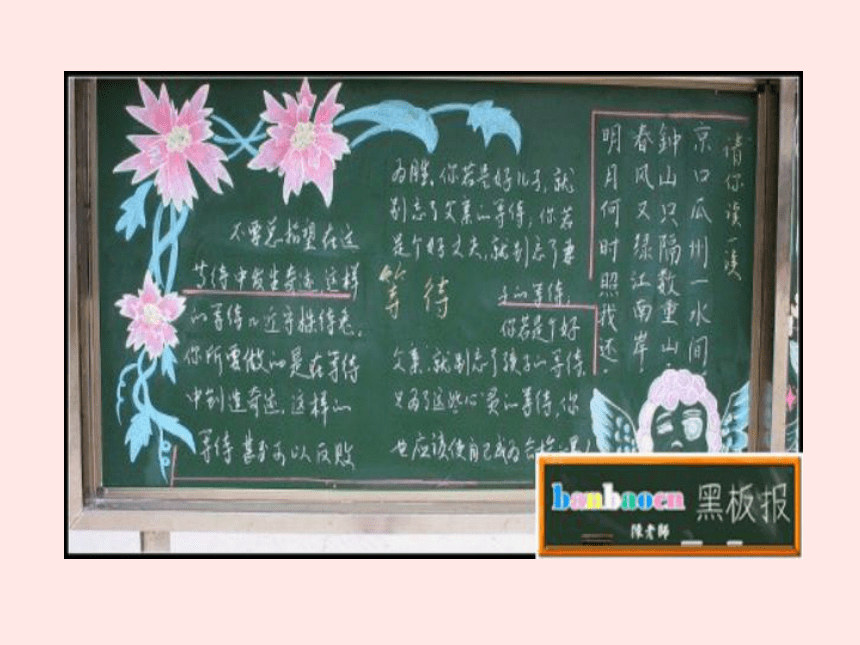 等待
不要总指望在这
等待中发生奇迹,这样
的等待几近守株待兔,
你所要做的是在等待
中创造奇迹,这样的
等待甚至可以反败
为胜。你若是好儿子,就
别忘了父亲的等待,你若
是个好丈夫,就别忘了妻
子的等待,
你若是个好
父亲,就别忘了孩子的等待,
只为了这些心灵的等待,你
也应该使自己成为合格
请你读一读
京口瓜州一水间
钟山只隔数重山
春风又绿江南岸
明月何时照我还
banbaocn
黑板报
陳老師